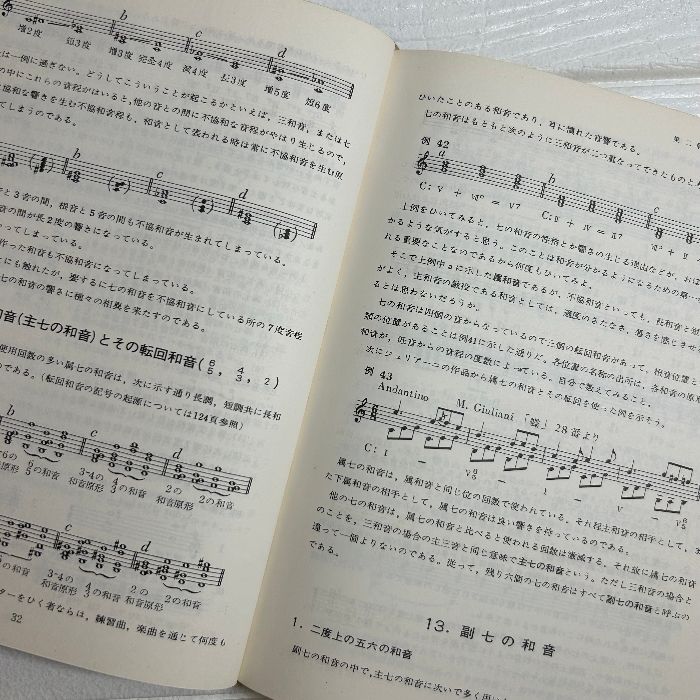 b c d
増2度 短3度 増3度 完全4度 減4度 長3度 増5度 短6度
は一例に過ぎない。どうしてこういうことが起こるかといえば、三和音、または七
の中にこれらの音程がはいると、他の音との間に不協和な音程がやはり生じるので、
協和な響きを生む不協和音程も、和音として表われる時は常に不協和音を生む原
てしまうのである。
b c d
音と3音の間、根音と5音の間も不協和音が生まれてしまっている。
音の間が長2度の響きになっている。
ってしまっている。
作った和音も不協和音になってしまっている。
にも触れたが、要するに七の和音を不協和音にしている所の7度音程
七の和音の響きに種々の相異を来たすのである。
和音(主七の和音)とその転回和音(6/5, 4/3, 2)
使用回数の多い属七の和音は、次に示す通り長調、短調共に長和
である。(転回和音の記号の起源については124頁参照)
b c d
5-6の 6/5の和音 3-4の 和音原形 4/3の和音 2の 和音原形 2の和音
b c d
3-4の 和音原形 4/3の和音 2の 和音原形 2の和音
ターをひく者ならば、練習曲、楽曲を通じて何度も
32
ひいたことのある和音であり、耳に慣れた音響である。
七の和音はもともと次のように三和音が二つ重なってできたものと
例 42
a b c
C: V + VII° = V7 C: V + IV = II7
上例をひいてみると、七の和音の性格とか響きの生じる理由などが、おぼ
かるような気がすると思う。このことは和音が分かるようになるための第一
れる重要なことなのであるから何度もひいてみよ。
そこで上例中aに示した属和音であるが、不協和音といっても、長和音と短
がよく、主和音の敵役である和音としては、適度のきたなさ、悪さを感じさせ
るとは思わないだろうか。
七の和音は四個の音からなっているので三個の転回和音があって、根音位置と
類の位置があることは例41に示した通りだ。各位置の名称の出所は、各和音の原形
和音が、低音からの音程の度数によっている。自分で数えてみること。
次にジュリアーニの作品から属七の和音とその転回を使った例を示そう。
例 43
Andantino M. Giuliani 「蝶」28番より
C: I – V6/5 – I – V – I
属七の和音は、属和音と同じ位の回数で使われている。それ程主和音の相手として、
た下属和音の相手として、属七の和音は良い響きを持っているのである。
他の七の和音は、属七の和音と比べると使われる回数は激減する。それ故に属七の和音
のことを、三和音の場合の主三音と同じ意味で主七の和音という。ただし三和音の場合と
違って一個よりないのである。従って、残り六個の七の和音はすべて副七の和音と呼ぶの
である。
13. 副七の和音
1. 二度上の五六の和音
副七の和音の中で、主七の和音に次いで多く用い